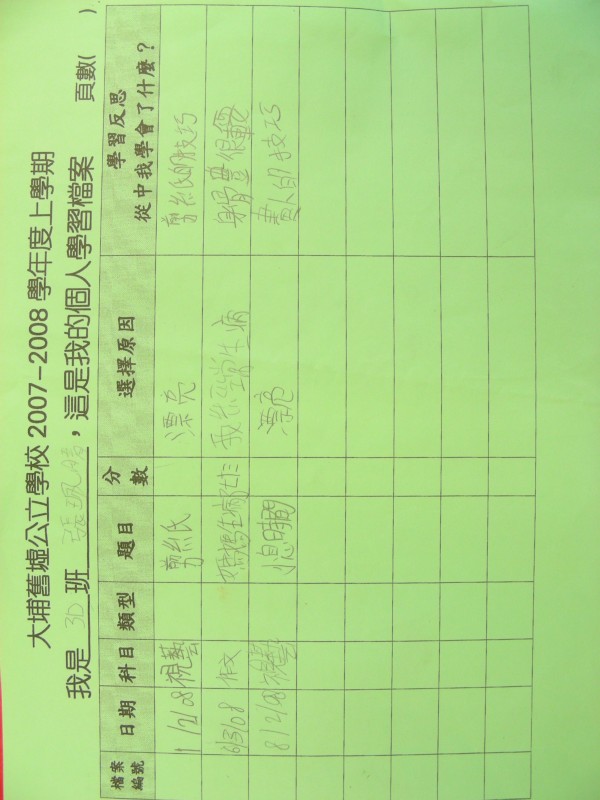 大埔舊墟公立學校 2007-2008 學年度上學期
我是 3D 班 張珮晴，這是我的個人學習檔案 頁數( )
檔案編號 日期 科目 類型 題目 分數 選擇原因 學習反思 從中我學會了什麼？
1/2/08 視藝 剪紙 漂亮 剪紙的技巧
6/3/08 作文 媽媽生病 我 常生病 健康很重
8/2/08 視藝 息時間 漂亮 畫人的技巧